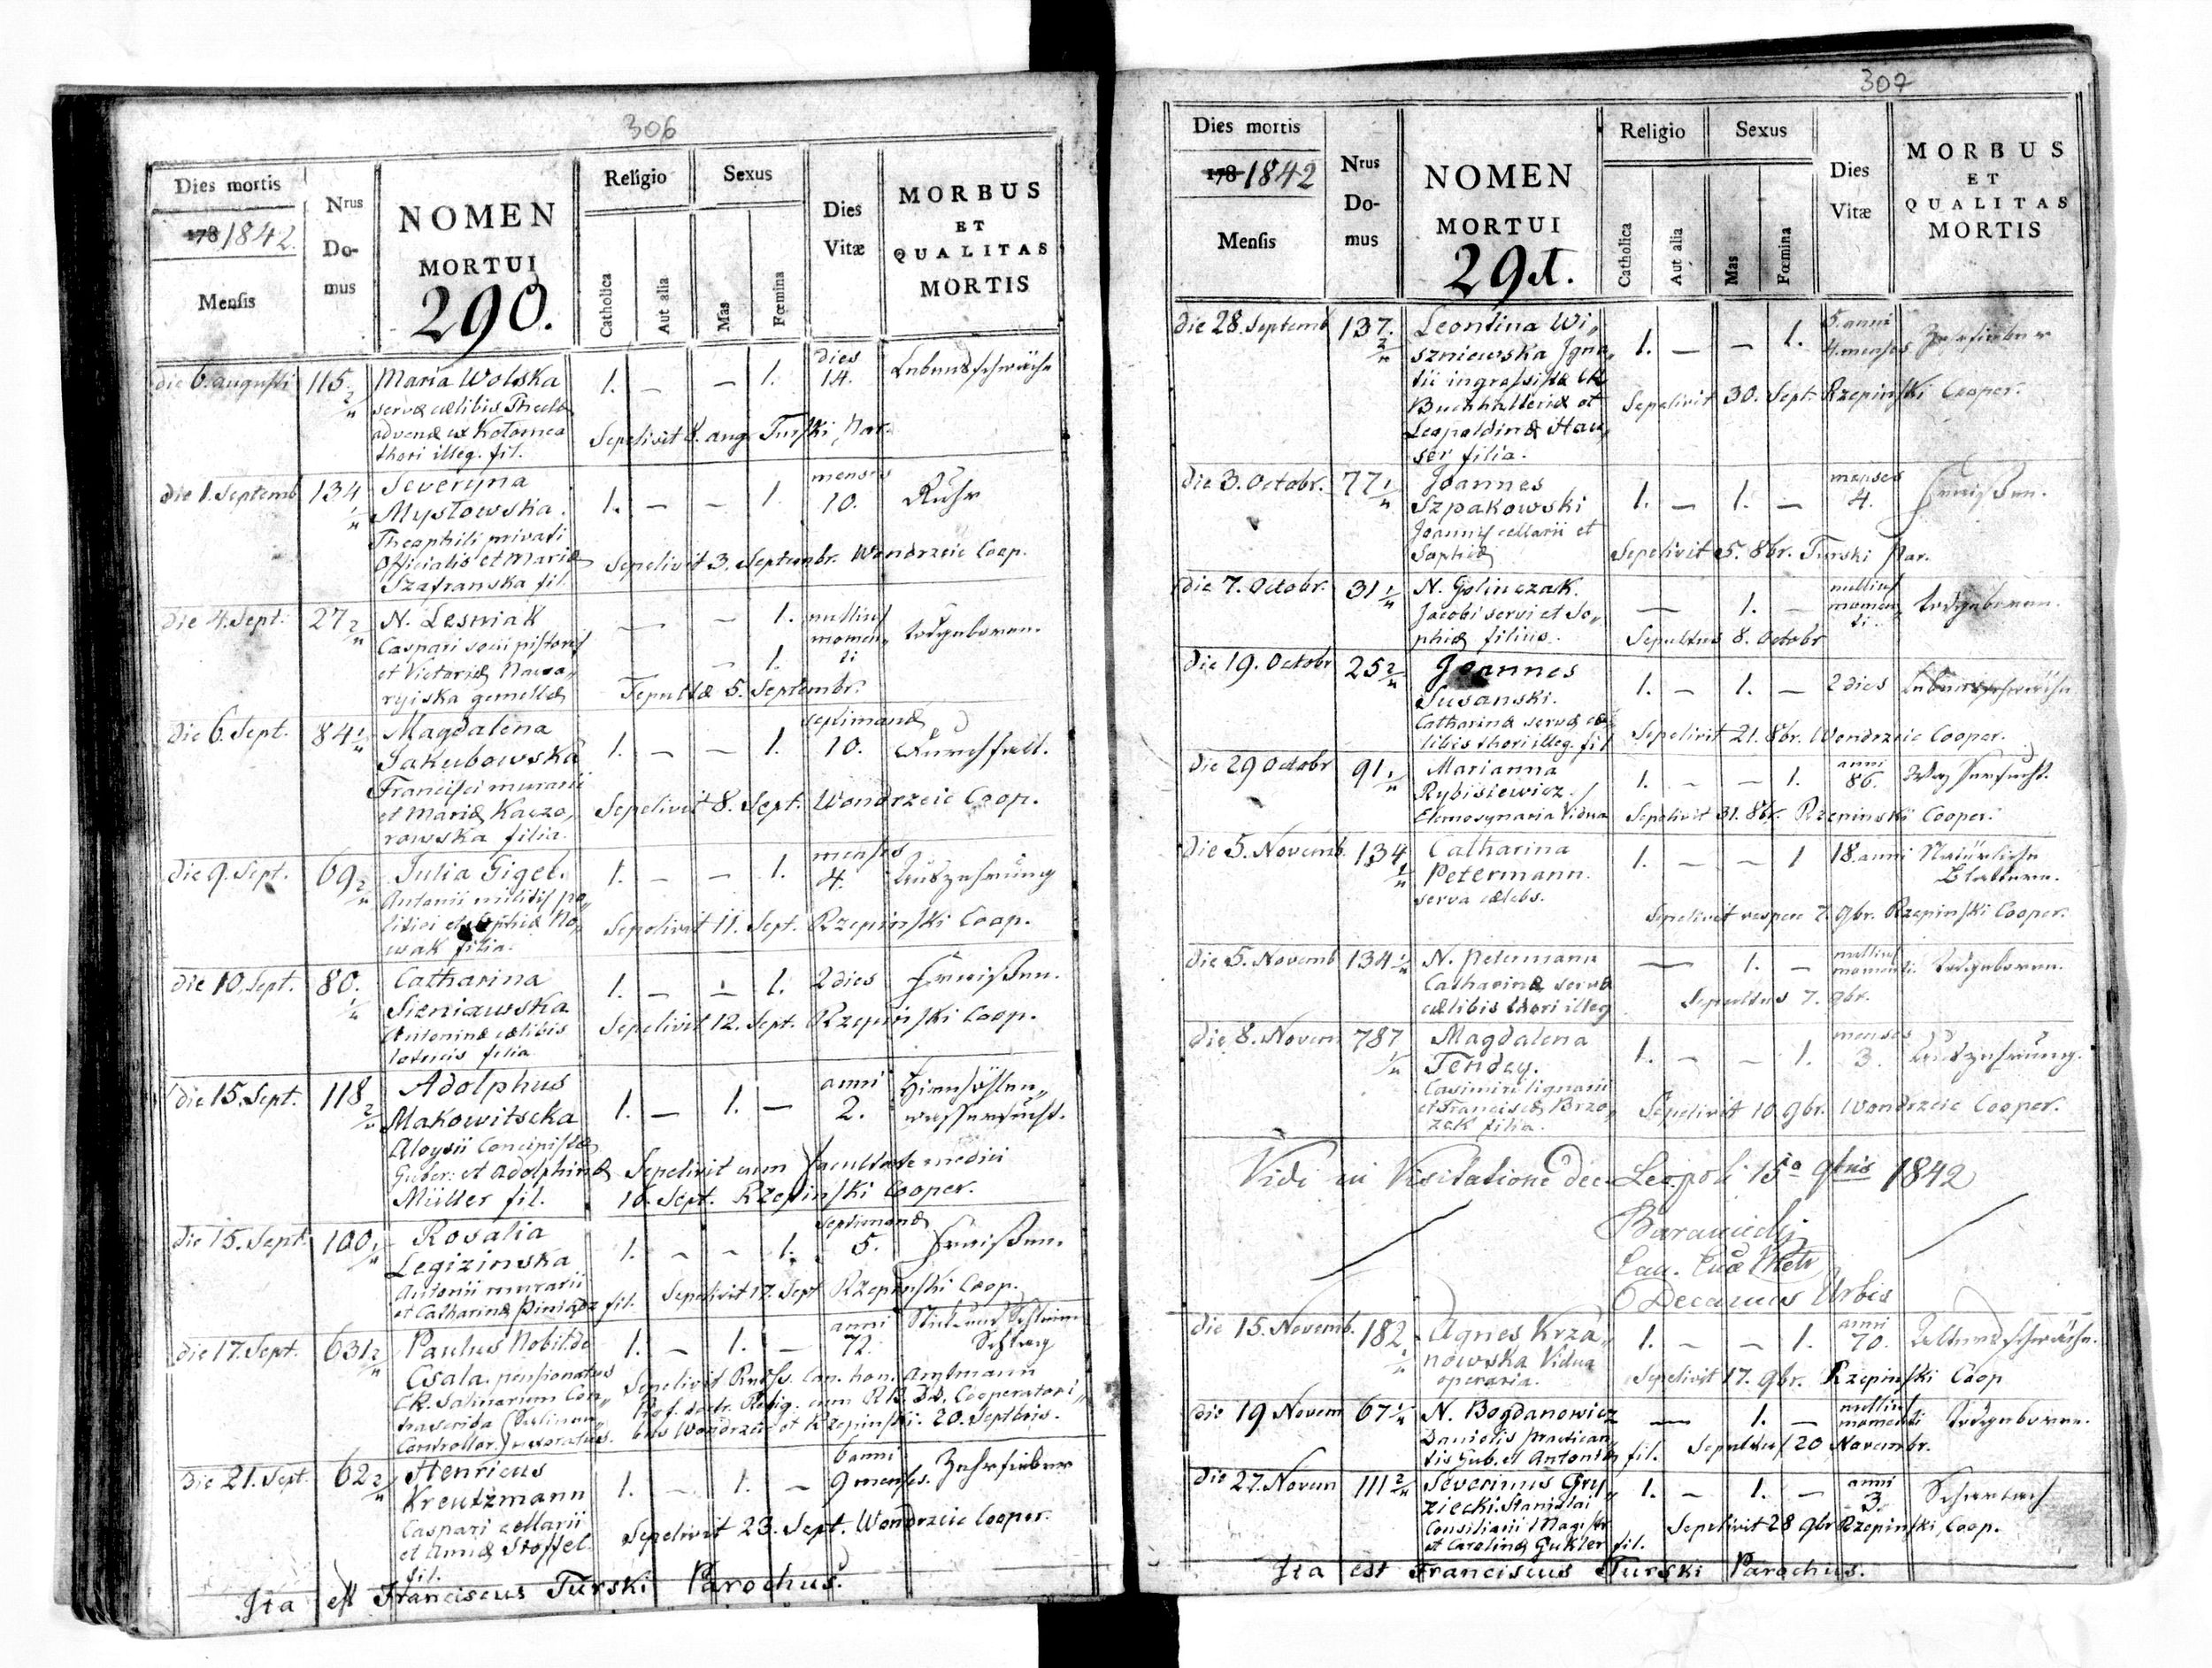 306
Dies mortis
178 1842.
Mensis
Nrus
Do-
mus
NOMEN
MORTUI
290.
Religio
Catholica
Aut alia
Sexus
Mas
Fœmina
Dies
Vitæ
MORBUS
ET
QUALITAS
MORTIS
die 6. augusti 115 2/u Maria Wolska 1. — — 1. dies 14. Lebensschwäche
servæ cælibis Theclæ
advenæ ex Kotomea
thori illeg. fil.
Sepelivit 8. aug. Turski Par.
die 1. Septemb 134 1/u Severyna 1. — — 1. menses 10. Ruhr
Mysłowska.
Theophili privati
Officialis et Mariæ
Szafranska fil.
Sepelivit 3. Septembr. Wondrzeic Coop.
die 4. Sept. 27 2/u N. Lesniak — — 1. nullius momenti todtgeboren.
Caspari socii pistoris — 1.
et Victoriæ
gemellæ
Sepultæ 5. Septembr.
die 6. Sept. 84 1/u Magdalena 1. — — 1. septimanæ 10. Durchfall.
Jakubowska
Francisci murarii
et Mariæ Kaczo„
rowska filia.
Sepelivit 8. Sept. Wondrzeic Coop.
die 9. Sept. 69 2/u Julia Gigel. 1. — — 1. menses 4. Auszehrung
Antonii militis po„
litici et Sophiæ No„
wak filia.
Sepelivit 11. Sept. Rzepinski Coop.
die 10. Sept. 80. 1/u Catharina 1. — — 1. 2 dies Fraisen.
Sieniawska
Antoninæ cælibis
filia
Sepelivit 12. Sept. Rzepinski Coop.
die 15. Sept. 118 2/u Adolphus 1. — 1. — anni 2. Hirnhöhlen„
Makowitscka wassersucht.
Aloysii Concipistæ
Guber: et Adolphinæ
Müller fil.
Sepelivit cum facultate medici
16. Sept. Rzepinski Cooper.
die 15. Sept. 100 1/u Rosalia 1. — — 1. septimanæ 5. Fraisen.
Legizinska
Antonii murarii
et Catharinæ fil.
Sepelivit 17. Sept Rzepinski Coop.
die 17. Sept. 631 2/u Paulus Nobil. de 1. — 1. — anni 72. Stick und Schleim
Csala. pensionatus Schlag
CR. Salinarum Con„
Controllor.
Sepelivit Can. hon. Amtmann
Prof. doctr. Relig. cum Cooperatori„
bus Wondrzeic et Rzepinski. 20. Septbris.
die 21. Sept. 62 2/u Henricus 1. — 1. — 6 anni 9 menses. Zehrfieber
Kreutzmann
Caspari cellarii
et Annæ Stoffel.
fil.
Sepelivit 23. Sept. Wondrzeic Cooper.
Ita est Franciscus Turski Parochus.
307
Dies mortis
178 1842
Mensis
Nrus
Do-
mus
NOMEN
MORTUI
291.
Religio
Catholica
Aut alia
Sexus
Mas
Fœmina
Dies
Vitæ
MORBUS
ET
QUALITAS
MORTIS
die 28. Septemb 137. 2/u Leontina Wi„ 1. — — 1. 5. anni 4. menses Zehrfieber
szniewska Igna„
tii ingrossistæ CR
Buchhalteriæ et
Leopoldinæ Hau„
ser filia.
Sepelivit 30. Sept. Rzepinski Cooper.
die 3. Octobr. 77 1/u Joannes 1. — 1. — menses 4. Fraisen.
Szpakowski
Joannis cellarii et
Sophiæ
Sepelivit 5. 8br. Turski Par.
die 7. Octobr. 31 1/u N. Golinczak. — 1. — nullius momenti. todtgeboren.
Jacobi servi et So„
phiæ filius.
Sepultus 8. Octobr
die 19. Octobr 25 2/u Joannes 1. — 1. — 2 dies Lebensschwäche
Susanski.
Catharinæ servæ cæ„
libis thori illeg. fil
Sepelivit 21. 8br. Wondrzeic Cooper.
die 29 Octobr 91 1/u Marianna 1. — — 1. anni 86. Wassersucht.
Rybisiewicz.
Elemosynaria Vidua
Sepelivit 31. 8br. Rzepinski Cooper.
die 5. Novemb. 134 1/u Catharina 1. — — 1 18. anni Natürliche
Petermann. Blattern.
serva cælebs.
Sepelivit vespere 7. 9br. Rzepinski Cooper.
die 5. Novemb 134 1/u N. Petermann — 1. — nullius momenti. todtgeboren.
Catharinæ servæ
cælibis thori illeg
Sepultus 7. 9br.
die 8. Novem 787 1/u Magdalena 1. — — 1. menses 3. Auszehrung.
Tenday.
Casimiri lignarii
et Franciscæ Brzo„
zek filia.
Sepelivit 10 9br. Wondrzeic Cooper.
Vidi in Visitatione dec. Leopoli 15a 9bris 1842
Baraniecki
Can.
Decanus Urbis
die 15. Novemb. 182 1/u Agnes Krza„ 1. — — 1. anni 70. Altersschwäche.
nowska Vidua
operaria.
Sepelivit 17. 9br. Rzepinski Coop
die 19 Novem 67 1/u N. Bogdanowicz — 1. — nullius momenti todtgeboren.
Danielis practican„
tis Gub. et Antoniæ fil.
Sepultus 20 Novembr.
die 27. Novem 111 2/u Severinus Gry„ 1. — 1. — anni 3. Scharlach
ziecki. Stanislai
Consiliarii Magistr
et Carolinæ Gukler fil.
Sepelivit 28 9br Rzepinski Coop.
Ita est Franciscus Turski Parochus.